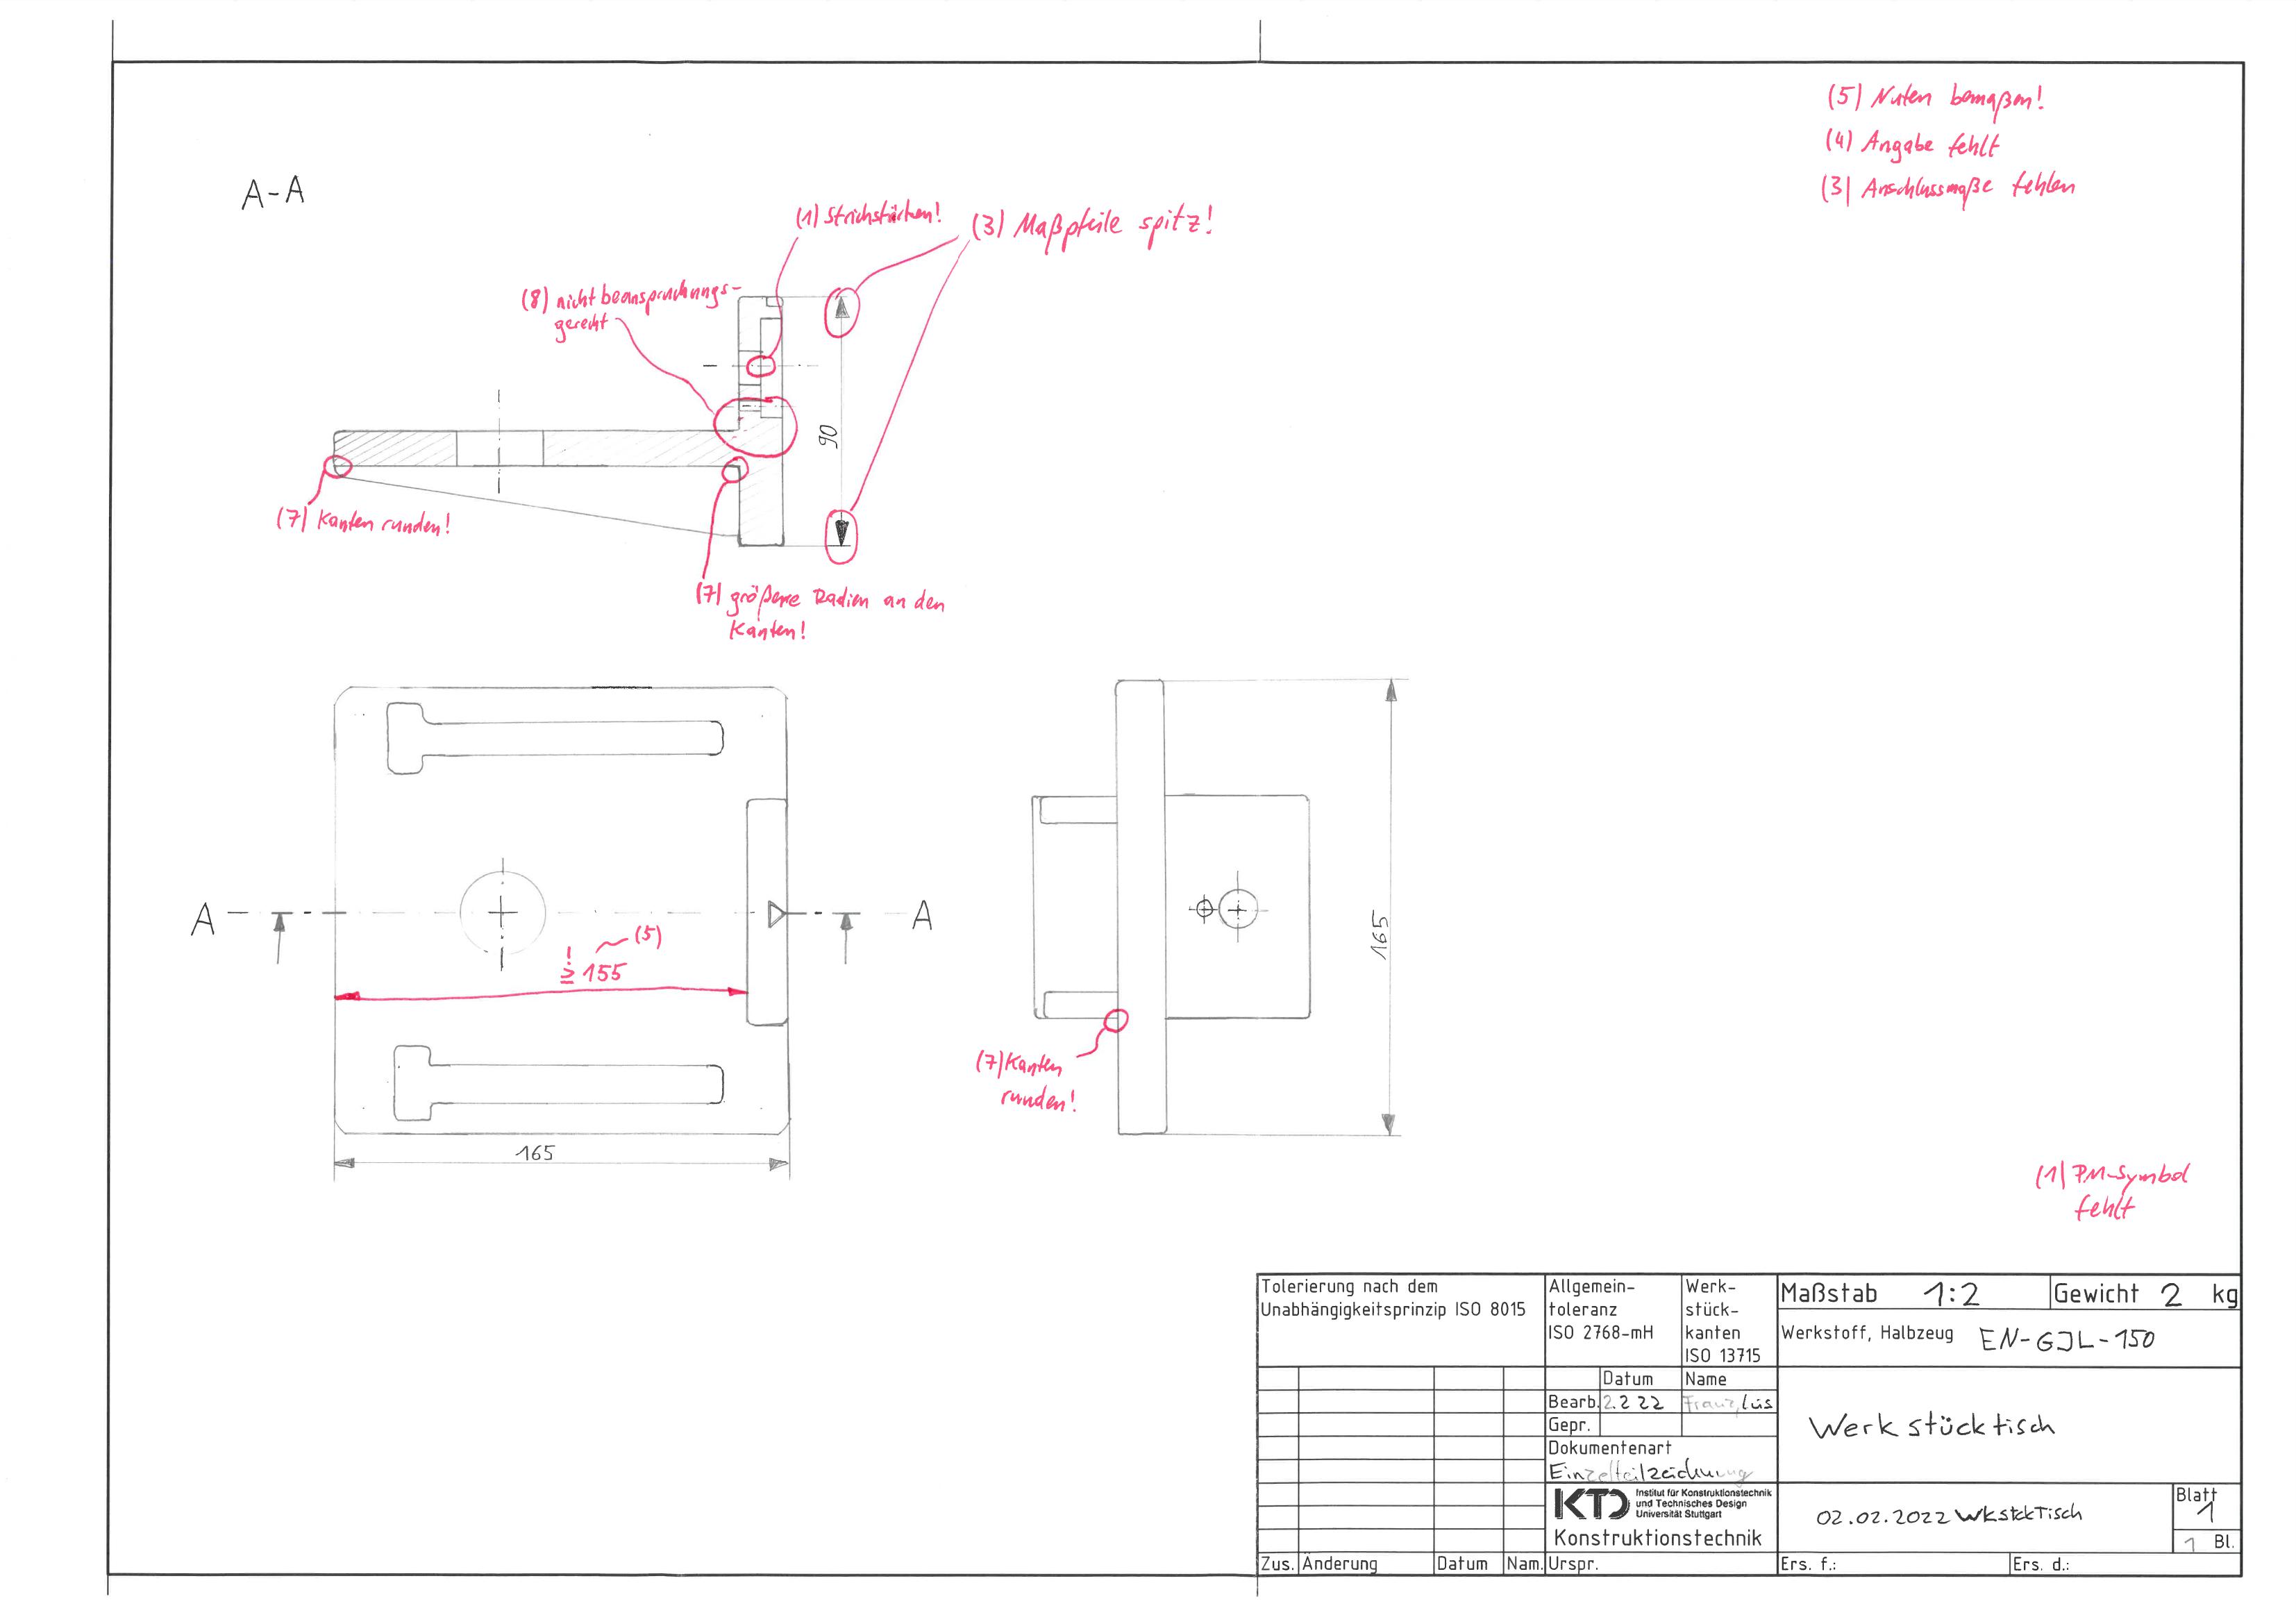 (5) Nuten bemaßen!
(4) Angabe fehlt
(3) Anschlussmaße fehlen
A-A
(1) Strichstärken!
(3) Maßpfeile spitz!
(8) nicht beanspruchungs-
gerecht
90
(7) Kanten runden!
(7) größere Radien an den
Kanten!
A
A
(5)
≥! 155
165
165
(7) Kanten
runden!
(1) PM-Symbol
fehlt
Tolerierung nach dem
Unabhängigkeitsprinzip ISO 8015
Allgemein-
toleranz
ISO 2768-mH
Werk-
stück-
kanten
ISO 13715
Maßstab 1:2
Gewicht 2 kg
Werkstoff, Halbzeug EN-GJL-150
Datum
Name
Bearb. 2.2 22
Gepr.
Dokumentenart
Einzelteilzeichnung
Werkstücktisch
KTD Institut für Konstruktionstechnik
und Technisches Design
Universität Stuttgart
Konstruktionstechnik
02.02.2022 WKstckTisch
Blatt
1
1 Bl.
Zus. Änderung Datum Nam. Urspr.
Ers. f.:
Ers. d.: